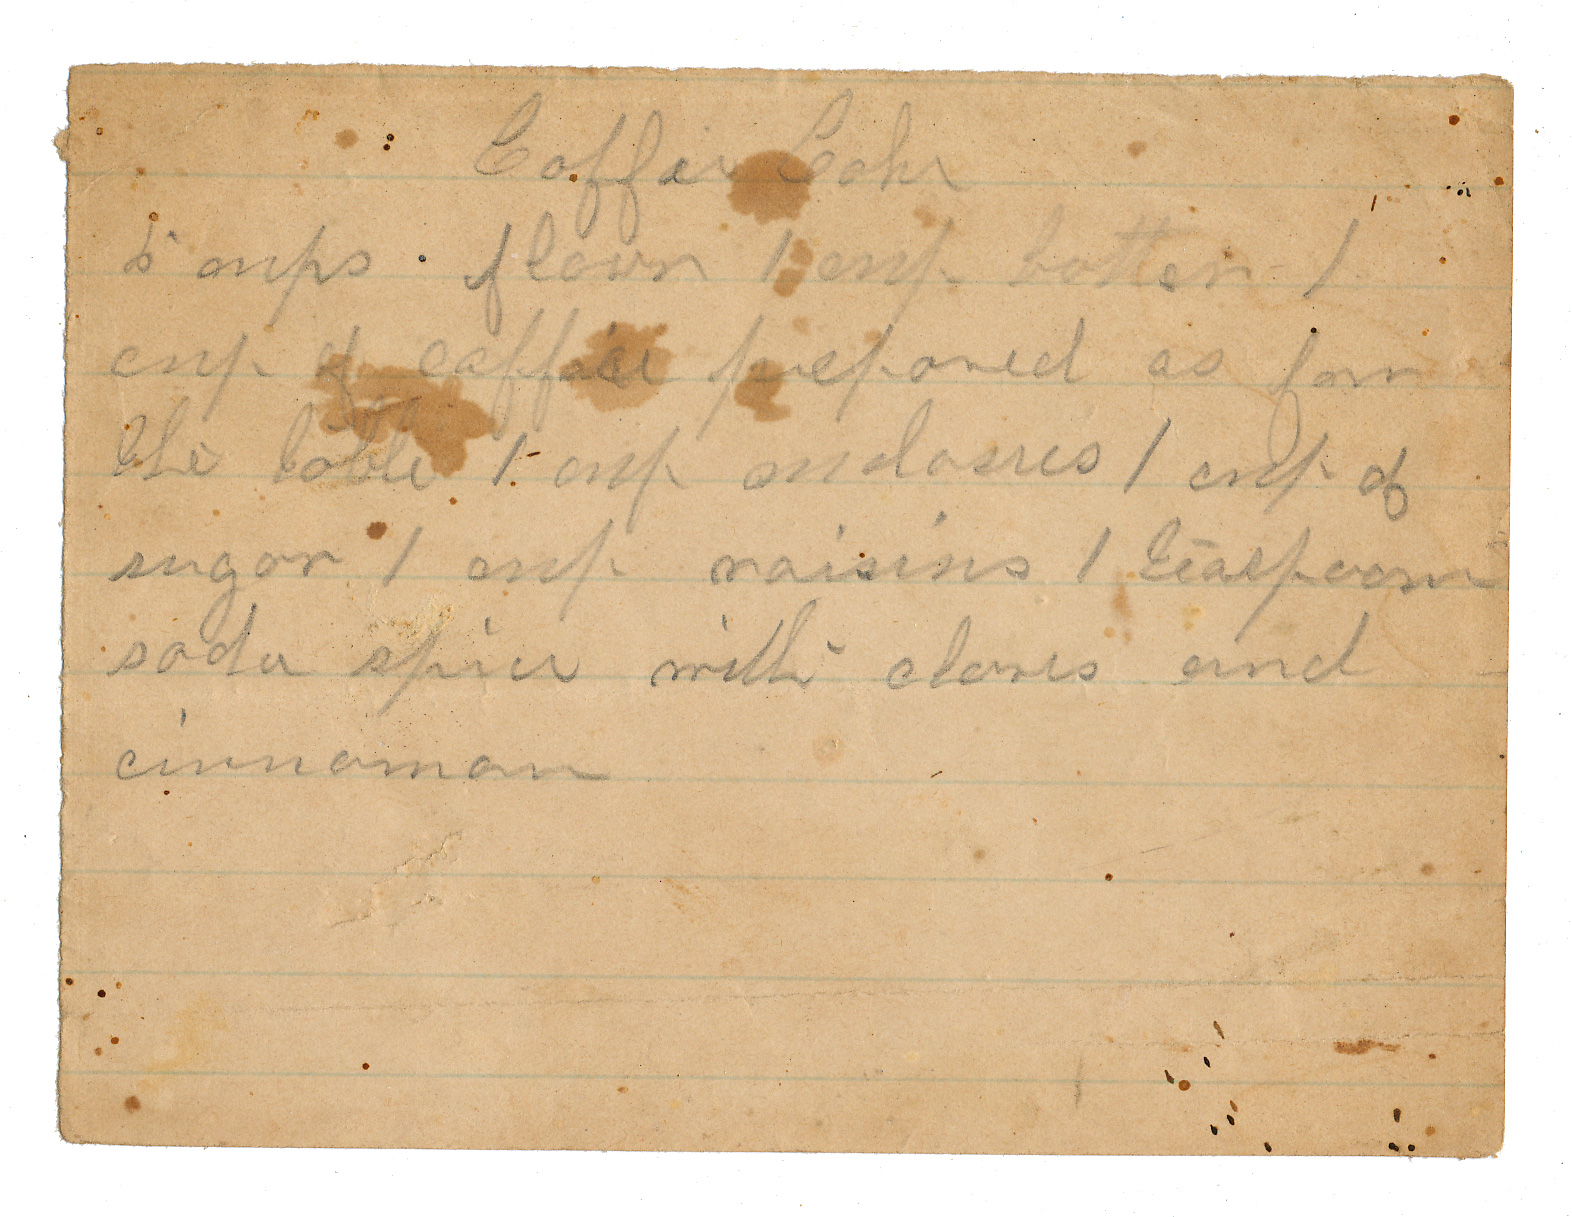 Coffee Cake
5 cups flour 1 cup butter 1
cup of coffee prepared as for
the table 1 cup molasses 1 cup of
sugar 1 cup raisins 1 teaspoon
soda spice with cloves and
cinnamon